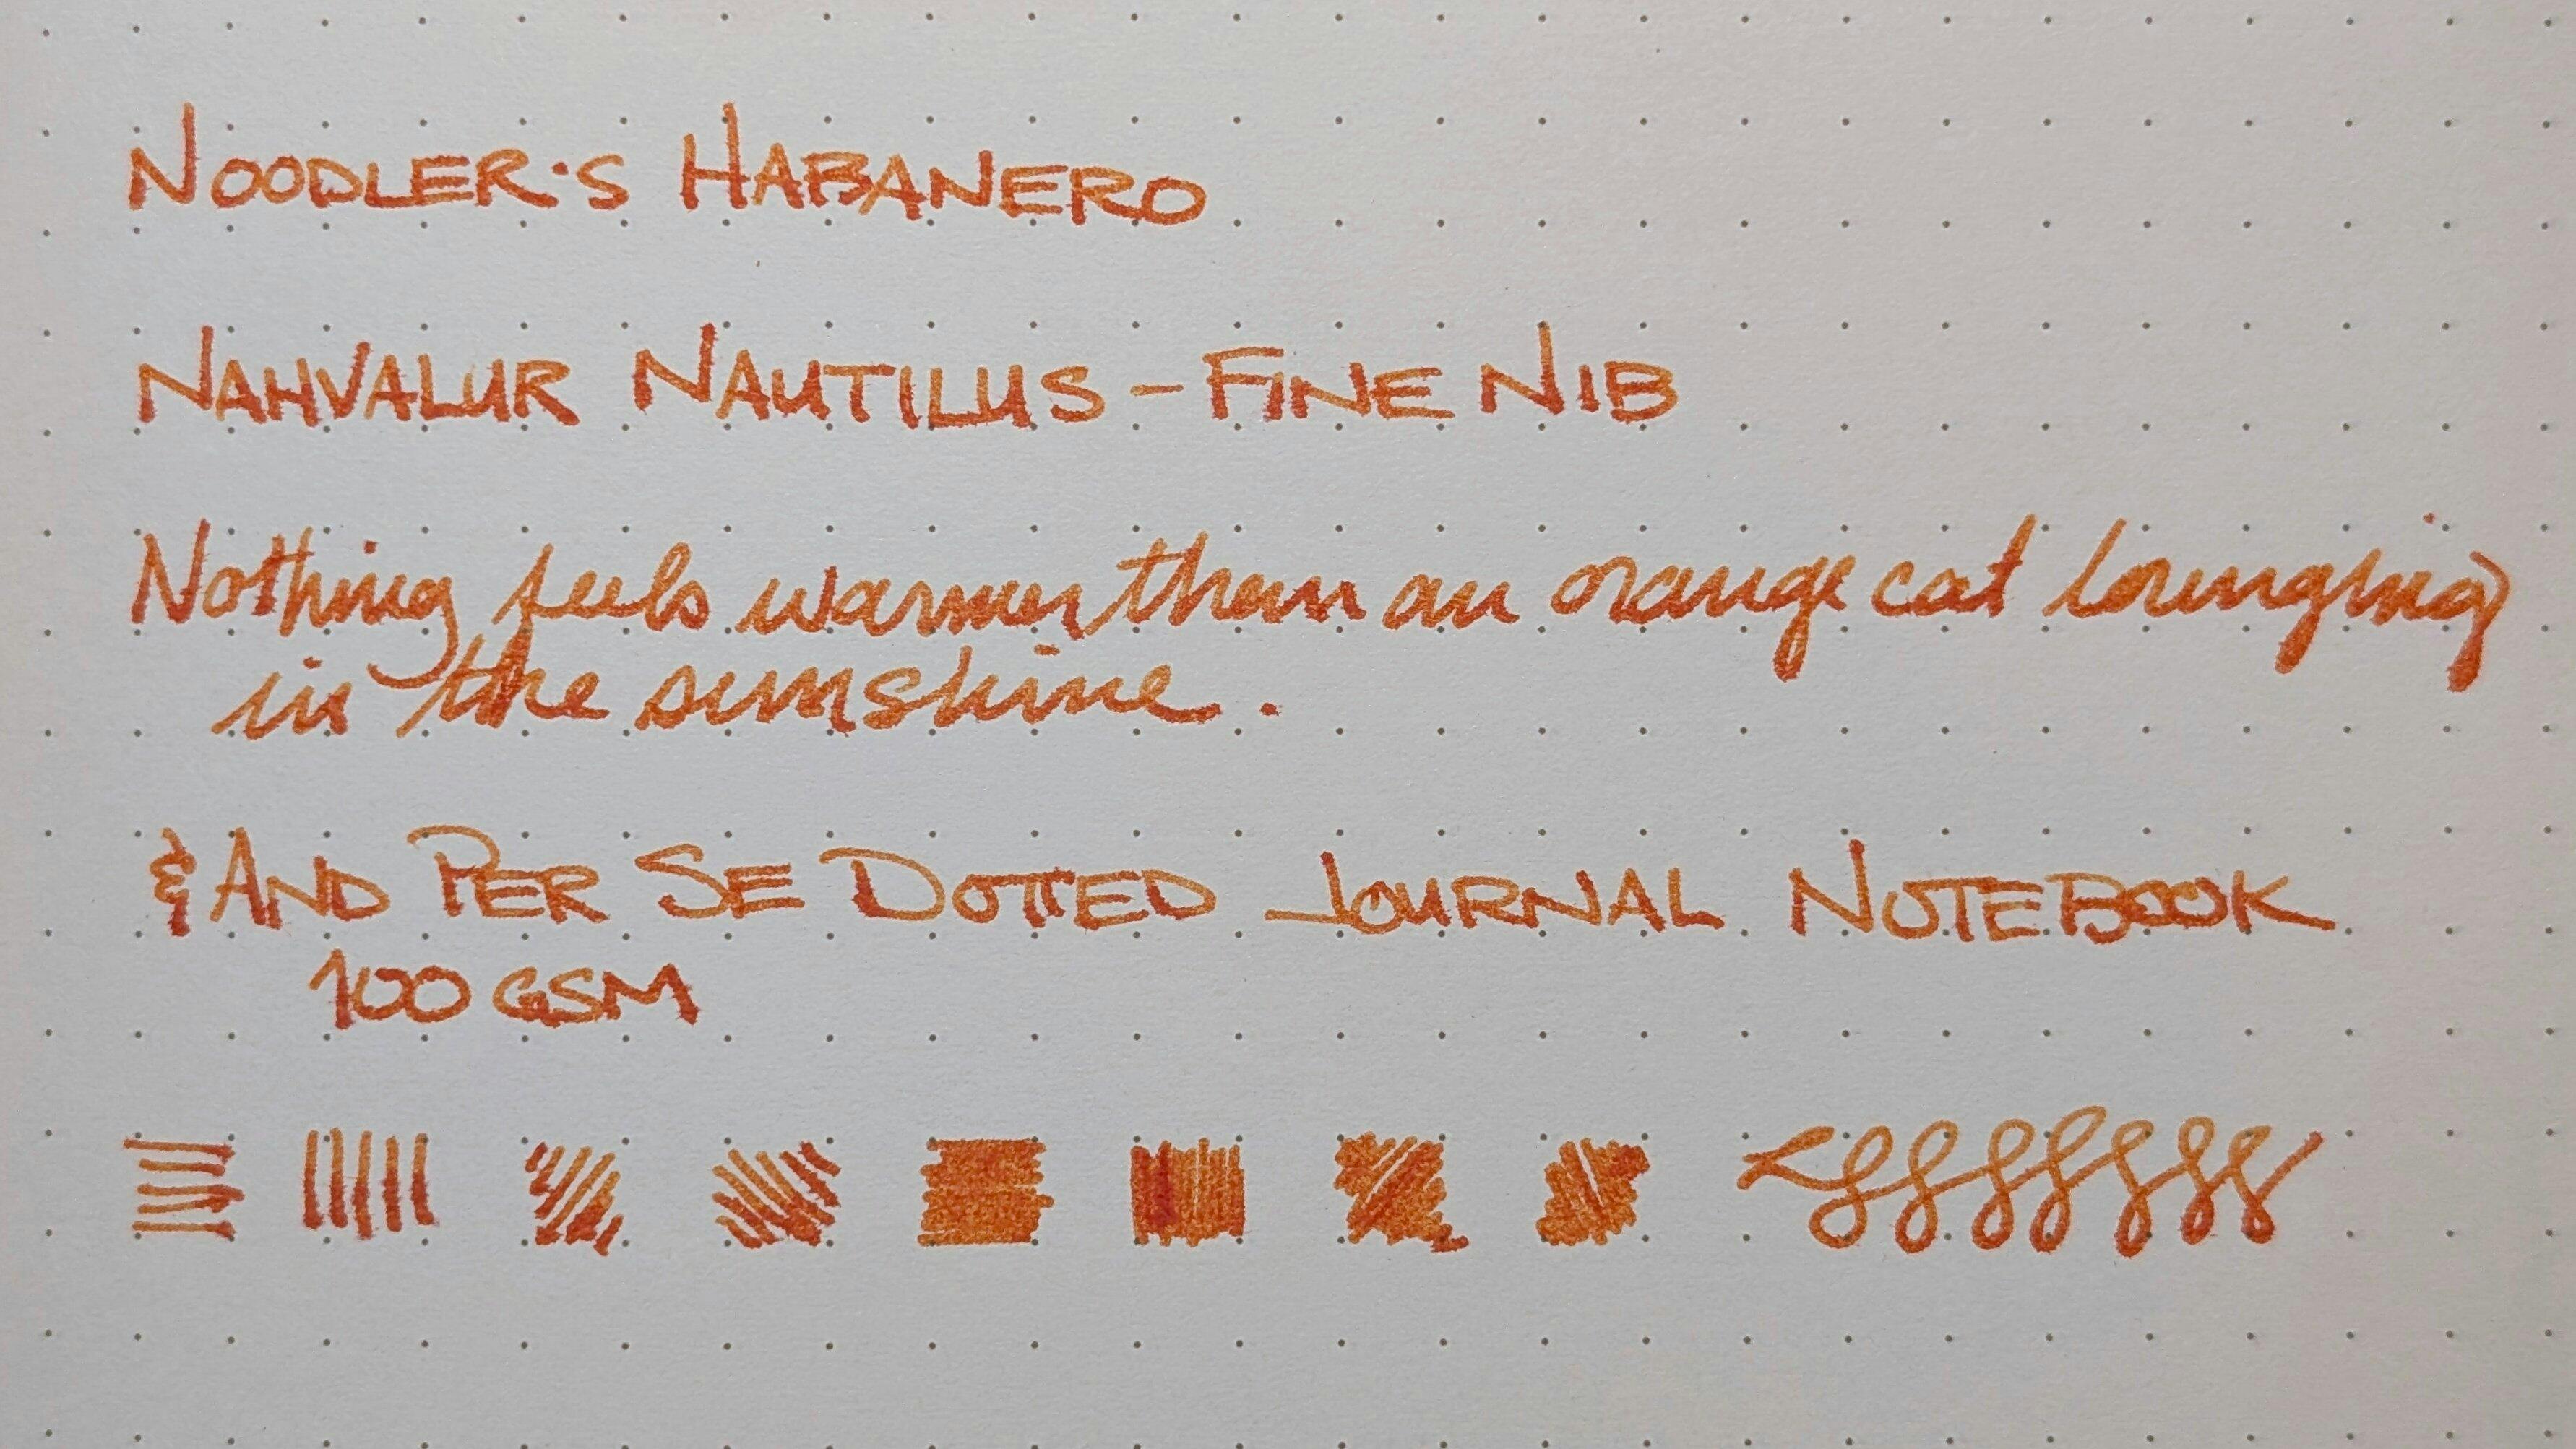 NOODLER'S HABANERO
NAHVALUR NAUTILUS - FINE NIB
Nothing feels warmer than an orange cat lounging
in the sunshine.
& AND PER SE DOTTED JOURNAL NOTEBOOK
100 GSM